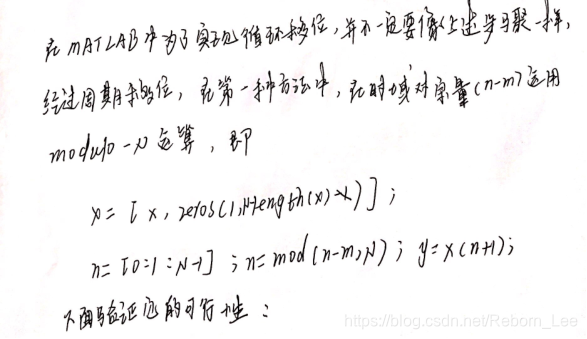 在MATLAB中为了实现循环移位,并不一定要像上述步骤一样,
经过周期移位,在第一种方法中,在时域对变量(n-m)运用
modulo-N运算,即
x=[x,zeros(1,N-length(x))];
n=[0:1:N-1];n=mod(n-m,N);y=x(n+1);
下面验证它的可行性:
https://blog.csdn.net/Reborn_Lee